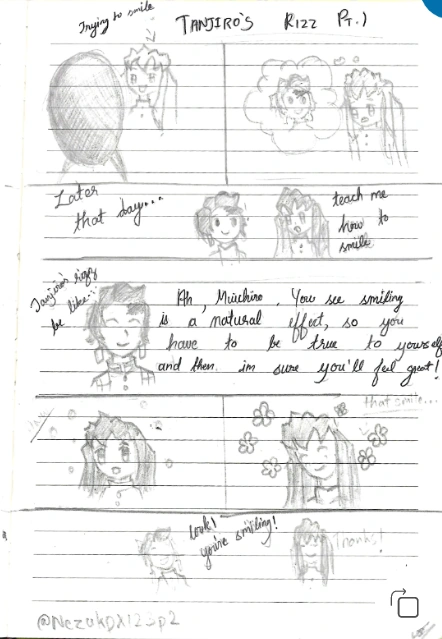 Trying to smile
TANJIRO'S RIZZ PT. 1
Later
that day...
teach me
how to
smile
Tanjiro's
be like..
Ah, Miuichiro. You see smiling
is a natural effect, so you
have to be true to yourself
and then im sure you'll feel great!
that smile...
look!
you're smiling!
Thanks!